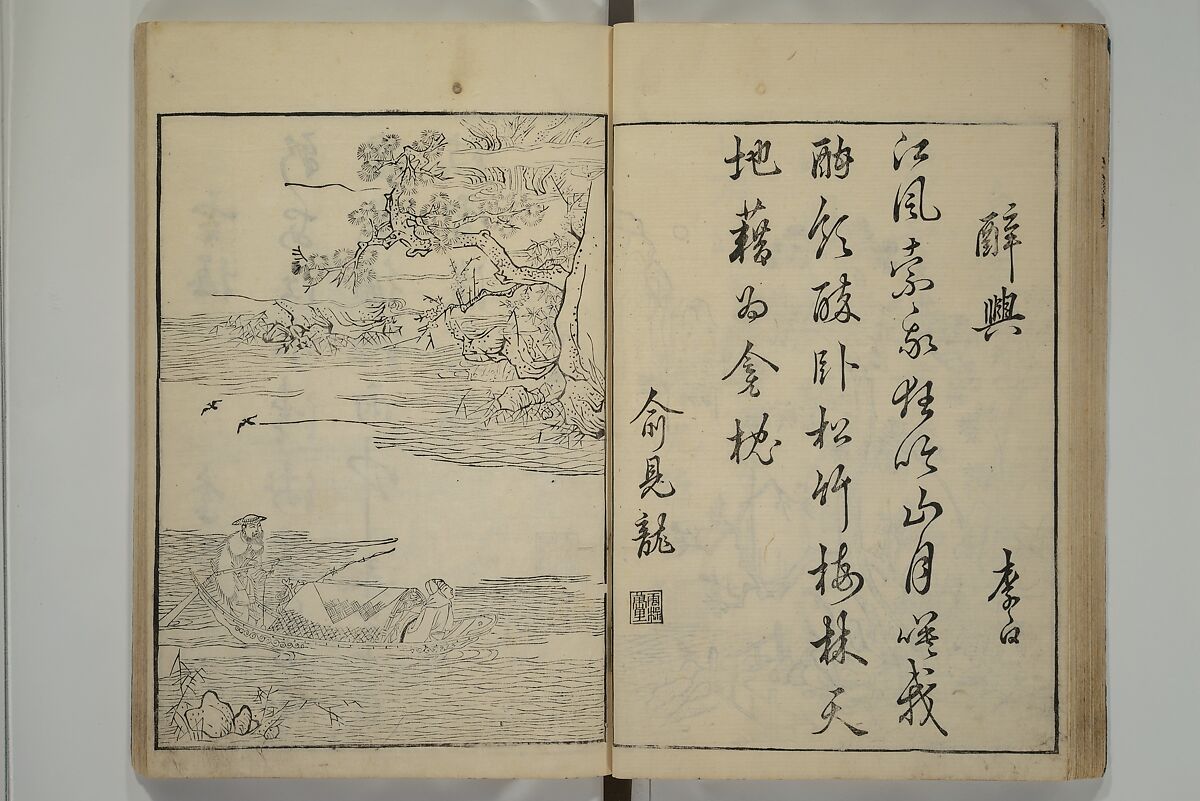 醉興
李白
江風索我狂吟山月笑我
酣飲醉臥松竹梅林天
地藉為衾枕
俞見龍